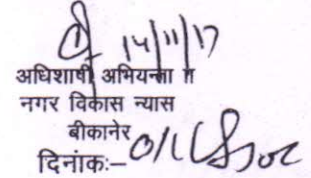 14/11/17
अधिशाषी अभियन्ता
नगर विकास न्यास
बीकानेर
दिनांक:–